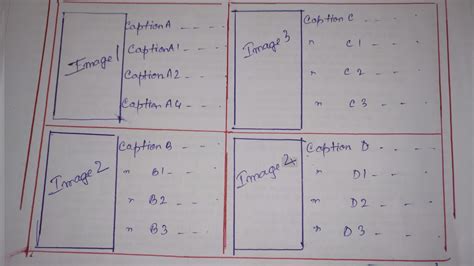 Image 1
Caption A - - - -
Caption A1 - - -
Caption A2 - - -
Caption A4 - - -
Image 3
Caption C - - -
" C 1 - -
" C 2 - -
" C 3 - -
Image 2
Caption B - - - -
" B1 - - -
" B2 - - -
" B3 - - -
Image 4
Caption D - - -
" D1 - -
" D2 - -
" D3 - -